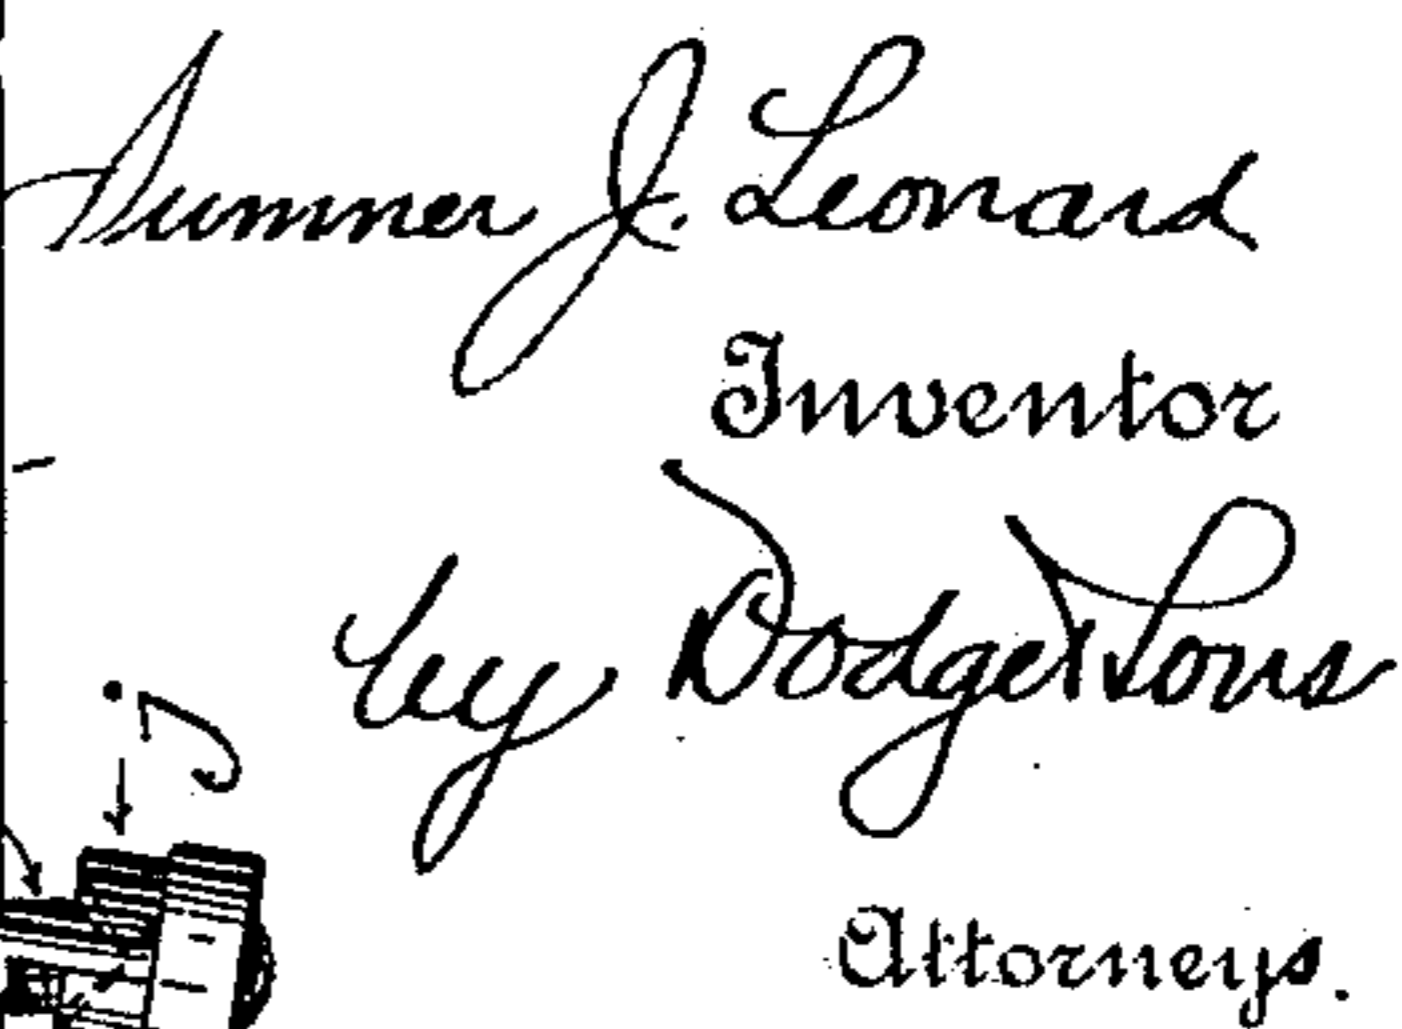 Sumner J. Leonard
Inventor
by Dodge & Sons
Attorneys.